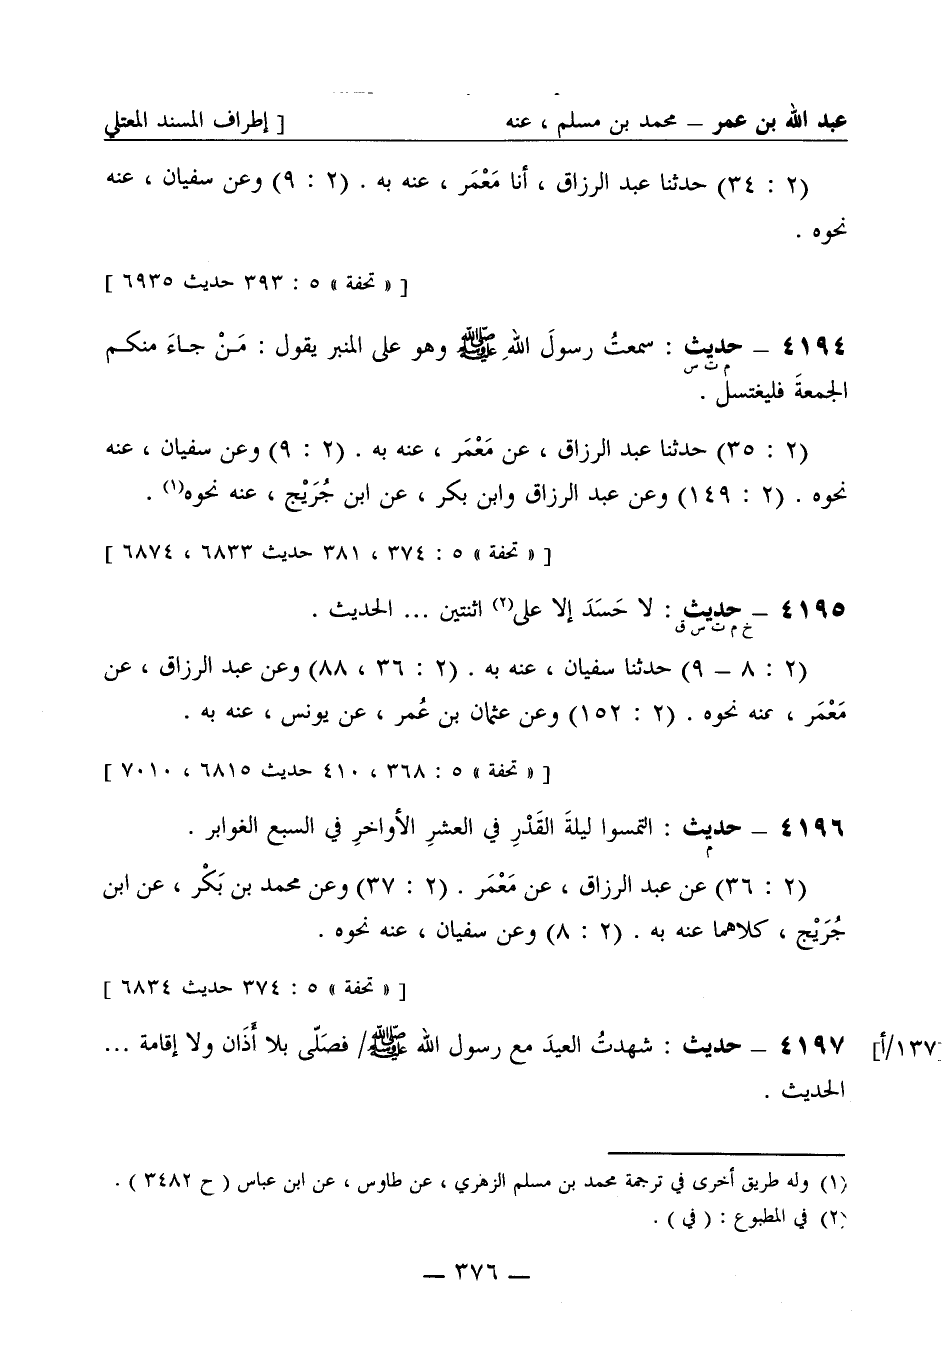 عبد الله بن عمر – محمد بن مسلم ، عنه [ إطراف المسند المعتلي
(٢ : ٣٤) حدثنا عبد الرزاق ، أنا مَعْمَر ، عنه به . (٢ : ٩) وعن سفيان ، عنه
نحوه .
[ « تحفة » ٥ : ٣٩٣ حديث ٦٩٣٥ ]
٤١٩٤ – حديث : سمعتُ رسولَ اللهِ ﷺ وهو على المنبر يقول : مَنْ جاءَ منكم
م ت س
الجمعةَ فليغتسل .
(٢ : ٣٥) حدثنا عبد الرزاق ، عن مَعْمَر ، عنه به . (٢ : ٩) وعن سفيان ، عنه
نحوه . (٢ : ١٤٩) وعن عبد الرزاق وابن بكر ، عن ابن جُرَيْج ، عنه نحوه(١) .
[ « تحفة » ٥ : ٣٧٤ ، ٣٨١ حديث ٦٨٣٣ ، ٦٨٧٤ ]
٤١٩٥ – حديث : لا حَسَدَ إلا على(٢) اثنتين ... الحديث .
خ م ت س ق
(٢ : ٨ – ٩) حدثنا سفيان ، عنه به . (٢ : ٣٦ ، ٨٨) وعن عبد الرزاق ، عن
مَعْمَر ، عنه نحوه . (٢ : ١٥٢) وعن عثمان بن عُمر ، عن يونس ، عنه به .
[ « تحفة » ٥ : ٣٦٨ ، ٤١٠ حديث ٦٨١٥ ، ٧٠١٠ ]
٤١٩٦ – حديث : التمسوا ليلةَ القَدْرِ في العشرِ الأواخرِ في السبع الغوابر .
م
(٢ : ٣٦) عن عبد الرزاق ، عن مَعْمَر . (٢ : ٣٧) وعن محمد بن بَكْر ، عن ابن
جُرَيْج ، كلاهما عنه به . (٢ : ٨) وعن سفيان ، عنه نحوه .
[ « تحفة » ٥ : ٣٧٤ حديث ٦٨٣٤ ]
[١٣٧/أ] ٤١٩٧ – حديث : شهدتُ العيدَ مع رسول الله ﷺ/ فصَلّى بلا أَذَان ولا إقامة ...
الحديث .
(١) وله طريق أخرى في ترجمة محمد بن مسلم الزهري ، عن طاوس ، عن ابن عباس ( ح ٣٤٨٢ ) .
(٢) في المطبوع : ( في ) .
– ٣٧٦ –